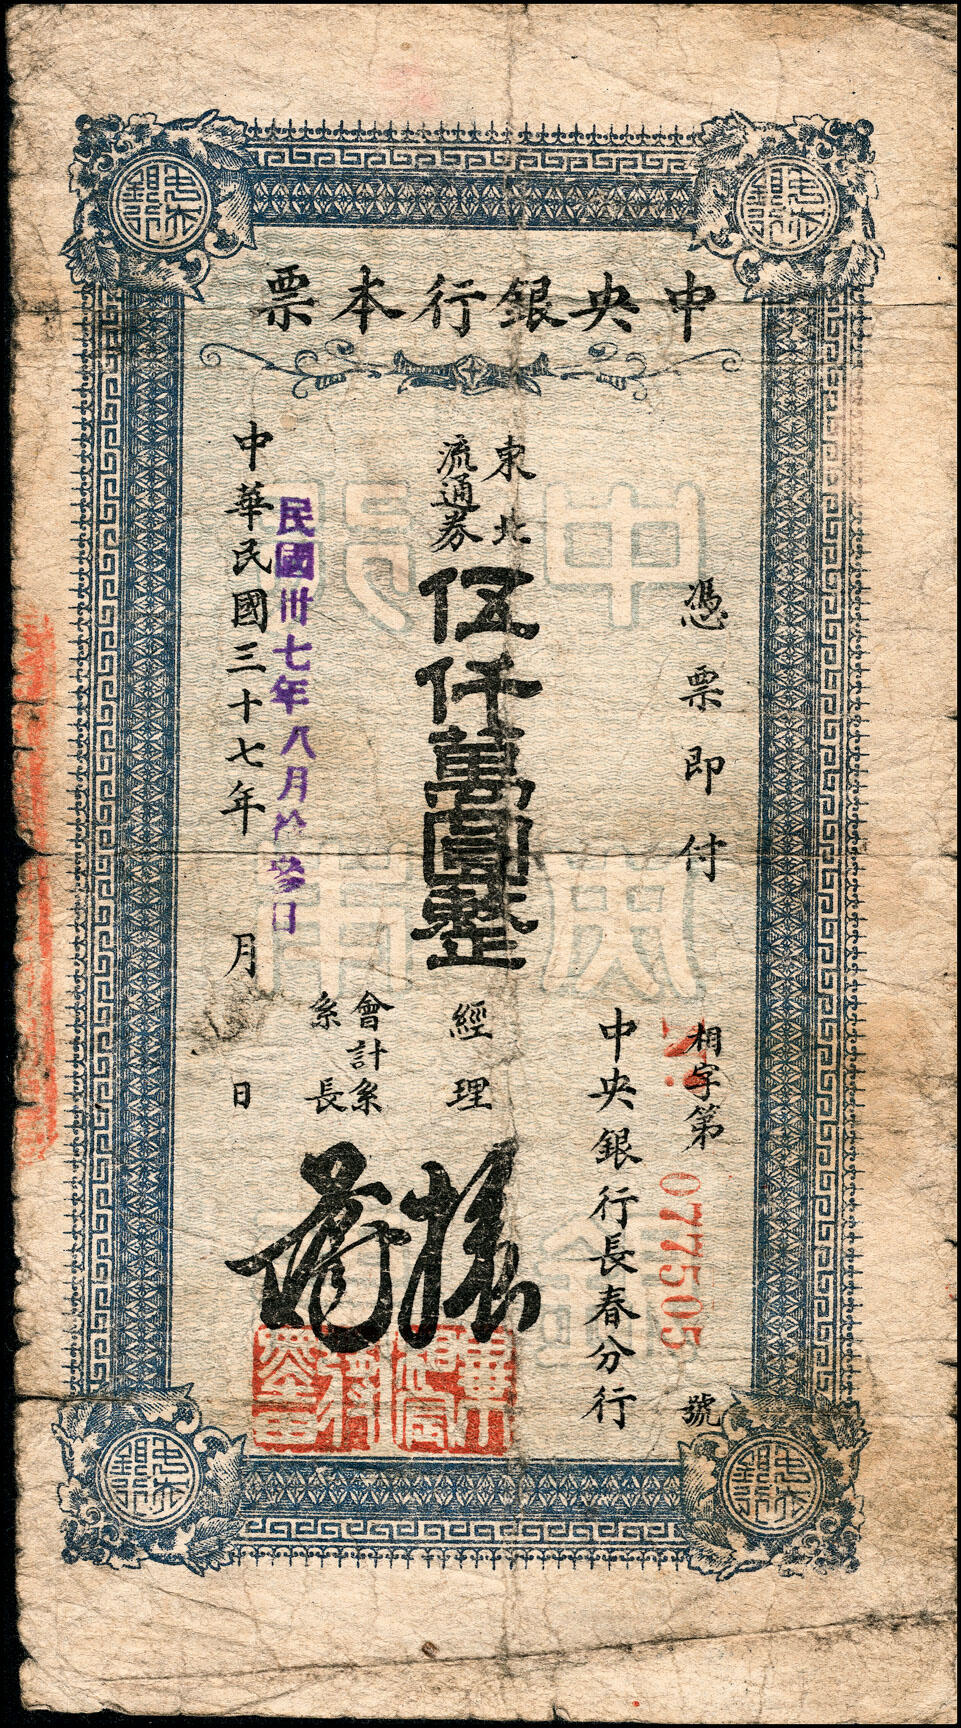 中央銀行本票
憑票即付
相字第 0775505 號
中央銀行長春分行
東北
流通券
伍仟萬圓整
經理
會計系
系長
民國卅七年八月拾參日
中華民國三十七年 月 日
中央銀行
中央銀行
中央銀行
中央銀行